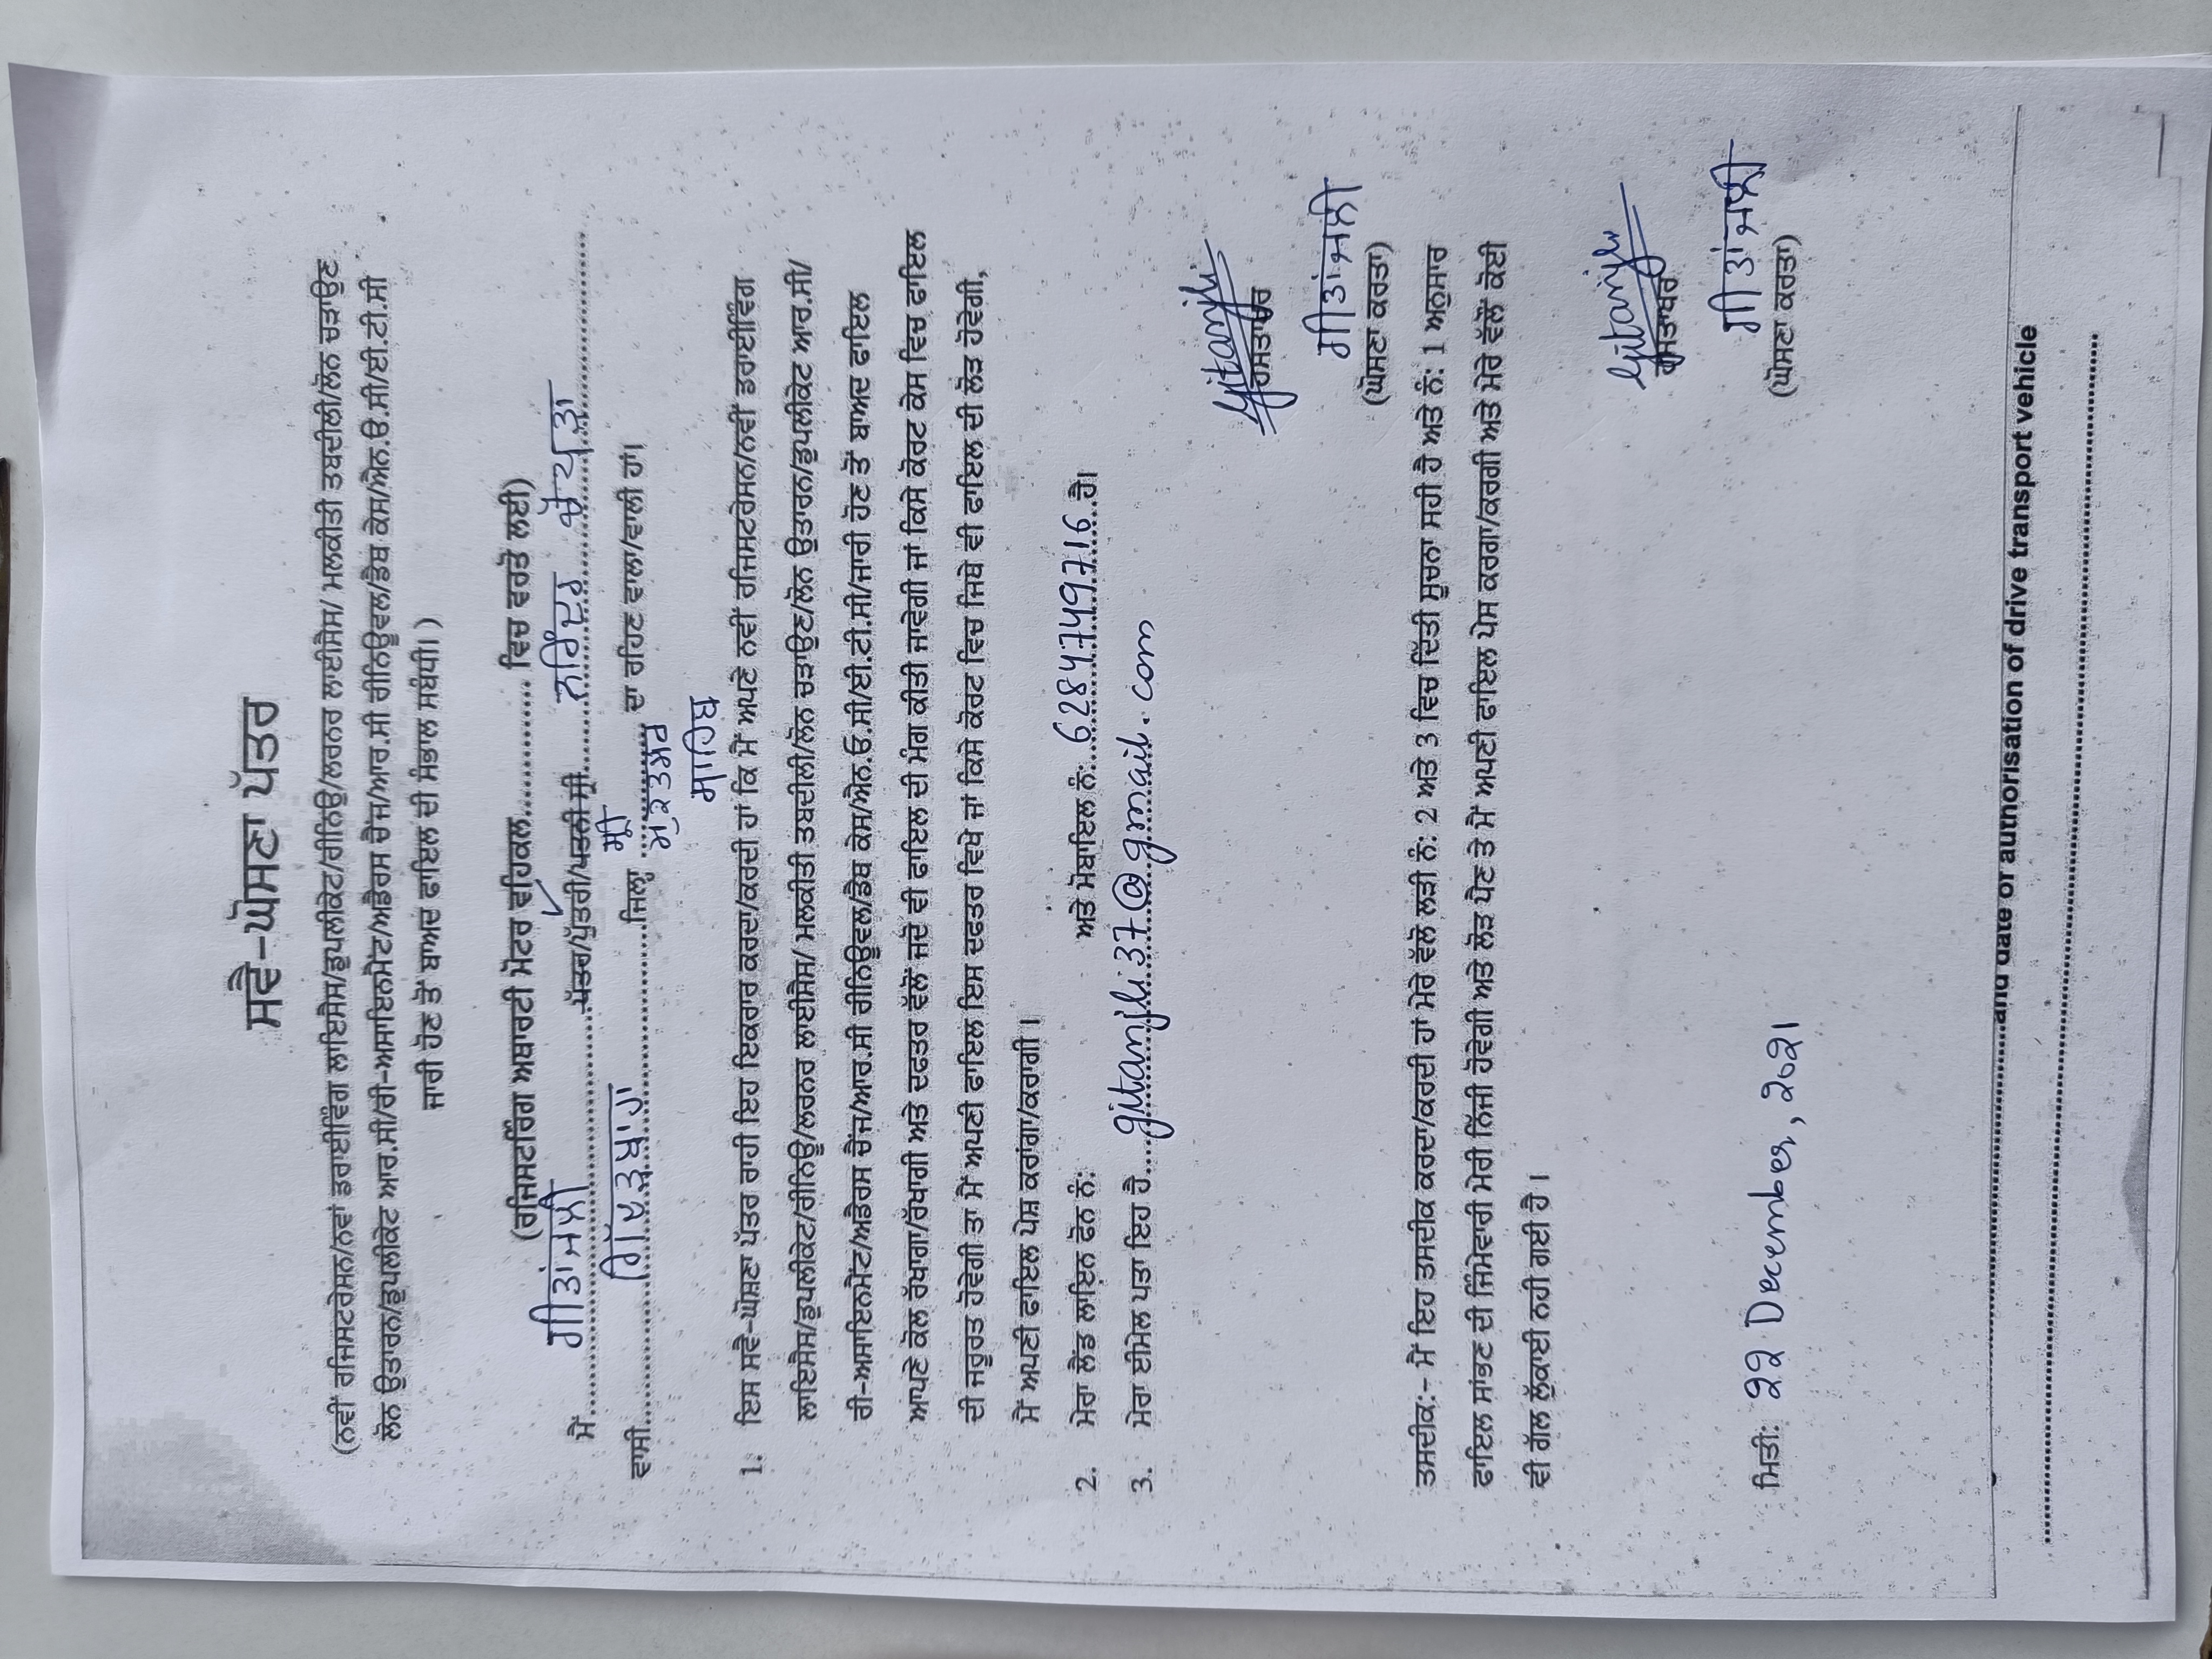 ਸਵੈ-ਘੋਸਣਾ ਪੱਤਰ
(ਨਵੀਂ ਰਜਿਸਟਰੇਸਨ/ਨਵਾਂ ਡਰਾਈਵਿੰਗ ਲਾਇਸੈਸ/ਡੂਪਲੀਕੇਟ/ਰੀਨਿਊ/ਲਰਨਰ ਲਾਈਸੈਸ/ ਮਲਕੀਤੀ ਤਬਦੀਲੀ/ਲੋਨ ਚੜਾਉਣ
ਲੋਨ ਉਤਾਰਨ/ਡੂਪਲੀਕੇਟ ਆਰ.ਸੀ/ਰੀ-ਅਸਾਇਨਮੈਂਟ/ਅਡੈਰਸ ਚੈਂਜ/ਆਰ.ਸੀ ਰੀਨਿਊਵਲ/ਡੈਥ ਕੇਸ/ਐਨ.ਓ.ਸੀ/ਬੀ.ਟੀ.ਸੀ
ਜਾਰੀ ਹੋਣ ਤੋਂ ਬਾਅਦ ਫਾਇਲ ਦੀ ਸੰਭਾਲ ਸਬੰਧੀ। )
(ਰਜਿਸਟਰਿੰਗ ਅਥਾਰਟੀ ਮੋਟਰ ਵਹਿਕਲ............ ਵਿਚ ਵਰਤੋ ਲਈ)
ਮੈਂ......ਗੀਤਾਂਜਲੀ......ਪੱਤਰ/ਪੁੱਤਰੀ/ਪਤਨੀ ਸ੍ਰੀ......ਨਰਿੰਦਰ
ਵਾਸੀ............ਜਿਲ੍ਹਾ ਸ੍ਰੀ ਮੁਕਤਸਰ ਸਾਹਿਬ ਦਾ ਰਹਿਣ ਵਾਲਾ/ਵਾਲੀ ਹਾਂ।
1. ਇਸ ਸਵੈ-ਘੋਸ਼ਣਾ ਪੱਤਰ ਰਾਹੀ ਇਹ ਇਕਰਾਰ ਕਰਦਾ/ਕਰਦੀ ਹਾਂ ਕਿ ਮੈਂ ਅਪਣੇ ਨਵੀਂ ਰਜਿਸਟਰੇਸਨ/ਨਵੀਂ ਡਰਾਈਵਿੰਗ
ਲਾਇਸੈਸ/ਡੂਪਲੀਕੇਟ/ਰੀਨਿਊ/ਲਰਨਰ ਲਾਈਸੈਸ/ ਮਲਕੀਤੀ ਤਬਦੀਲੀ/ਲੋਨ ਚੜਾਉਣ/ਲੋਨ ਉਤਾਰਨ/ਡੂਪਲੀਕੇਟ ਆਰ.ਸੀ/
ਰੀ-ਅਸਾਇਨਮੈਂਟ/ਅਡੈਰਸ ਚੈਂਜ/ਆਰ.ਸੀ ਰੀਨਿਊਵਲ/ਡੈਥ ਕੇਸ/ਐਨ.ਓ.ਸੀ/ਬੀ.ਟੀ.ਸੀ/ਜਾਰੀ ਹੋਣ ਤੋਂ ਬਾਅਦ ਫਾਇਲ
ਆਪਣੇ ਕੋਲ ਰੱਖਾਗਾ/ਰੱਖਾਗੀ ਅਤੇ ਦਫਤਰ ਵੱਲੋਂ ਜਦੋ ਵੀ ਫਾਇਲ ਦੀ ਮੰਗ ਕੀਤੀ ਜਾਵੇਗੀ ਜਾਂ ਕਿਸੇ ਕੋਰਟ ਕੇਸ ਵਿਚ ਫਾਇਲ
ਦੀ ਜਰੂਰਤ ਹੋਵੇਗੀ ਤਾ ਮੈਂ ਅਪਣੀ ਫਾਇਲ ਇਸ ਦਫਤਰ ਵਿਖੇ ਜਾਂ ਕਿਸੇ ਕੋਰਟ ਵਿਚ ਜਿਥੇ ਵੀ ਫਾਇਲ ਦੀ ਲੋੜ ਹੋਵੇਗੀ,
ਮੈਂ ਅਪਣੀ ਫਾਇਲ ਪੇਸ਼ ਕਰਾਂਗਾ/ਕਰਾਗੀ ।
2. ਮੇਰਾ ਲੈਂਡ ਲਾਇਨ ਫੋਨ ਨੰ: ਅਤੇ ਮੋਬਾਇਲ ਨੰ: 6284749716 ਹੈ।
3. ਮੇਰਾ ਈਮੇਲ ਪਤਾ ਇਹ ਹੈ....gitanjli37@gmail.com
Gitanjli
ਹਸਤਾਖਰ
ਗੀਤਾਂਜਲੀ
(ਘੋਸਣਾ ਕਰਤਾ)
ਤਸਦੀਕ:- ਮੈਂ ਇਹ ਤਸਦੀਕ ਕਰਦਾ/ਕਰਦੀ ਹਾਂ ਮੇਰੇ ਵੱਲੋਂ ਲੜੀ ਨੰ: 2 ਅਤੇ 3 ਵਿਚ ਦਿੱਤੀ ਸੂਚਨਾ ਸਹੀ ਹੈ ਅਤੇ ਨੰ: 1 ਅਨੁਸਾਰ
ਫਾਇਲ ਸਾਂਭਣ ਦੀ ਜਿੰਮੇਵਾਰੀ ਮੇਰੀ ਨਿੱਜੀ ਹੋਵੇਗੀ ਅਤੇ ਲੋੜ ਪੈਣ ਤੇ ਮੈਂ ਅਪਣੀ ਫਾਇਲ ਪੇਸ ਕਰਗਾ/ਕਰਗੀ ਅਤੇ ਮੇਰੇ ਵੱਲੋਂ ਕੋਈ
ਵੀ ਗੱਲ ਲੁੱਕਾਈ ਨਹੀ ਗਈ ਹੈ ।
Gitanjli
ਹਸਤਾਖਰ
ਗੀਤਾਂਜਲੀ
ਮਿਤੀ: 22 December, 2021 (ਘੋਸਣਾ ਕਰਤਾ)
and date of authorisation of drive transport vehicle